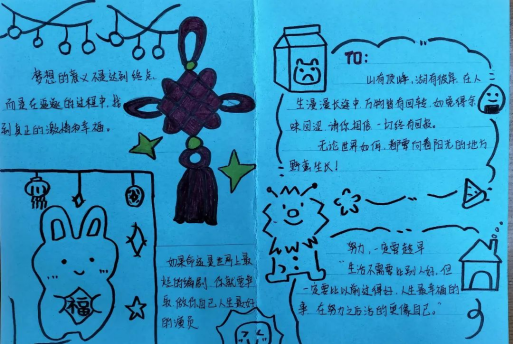 梦想的意义不是达到终点,
而是在追逐的过程中,找
到真正的激情和幸福。
福
如果命运是世上最
烂的编剧,你就要争
取做你自己人生最好
的演员
TO:
山有顶峰,湖有彼岸,在人
生漫漫长途中,万物皆有回转,如觉得余
味回涩,请你相信,一切终有回甘。
无论世界如何,都要向着阳光的地方
野蛮生长!
努力,一定要趁早
"生活不需要比别人好,但
一定要比以前过得好,人生最幸福的
事,在努力之后活的更像自己。"